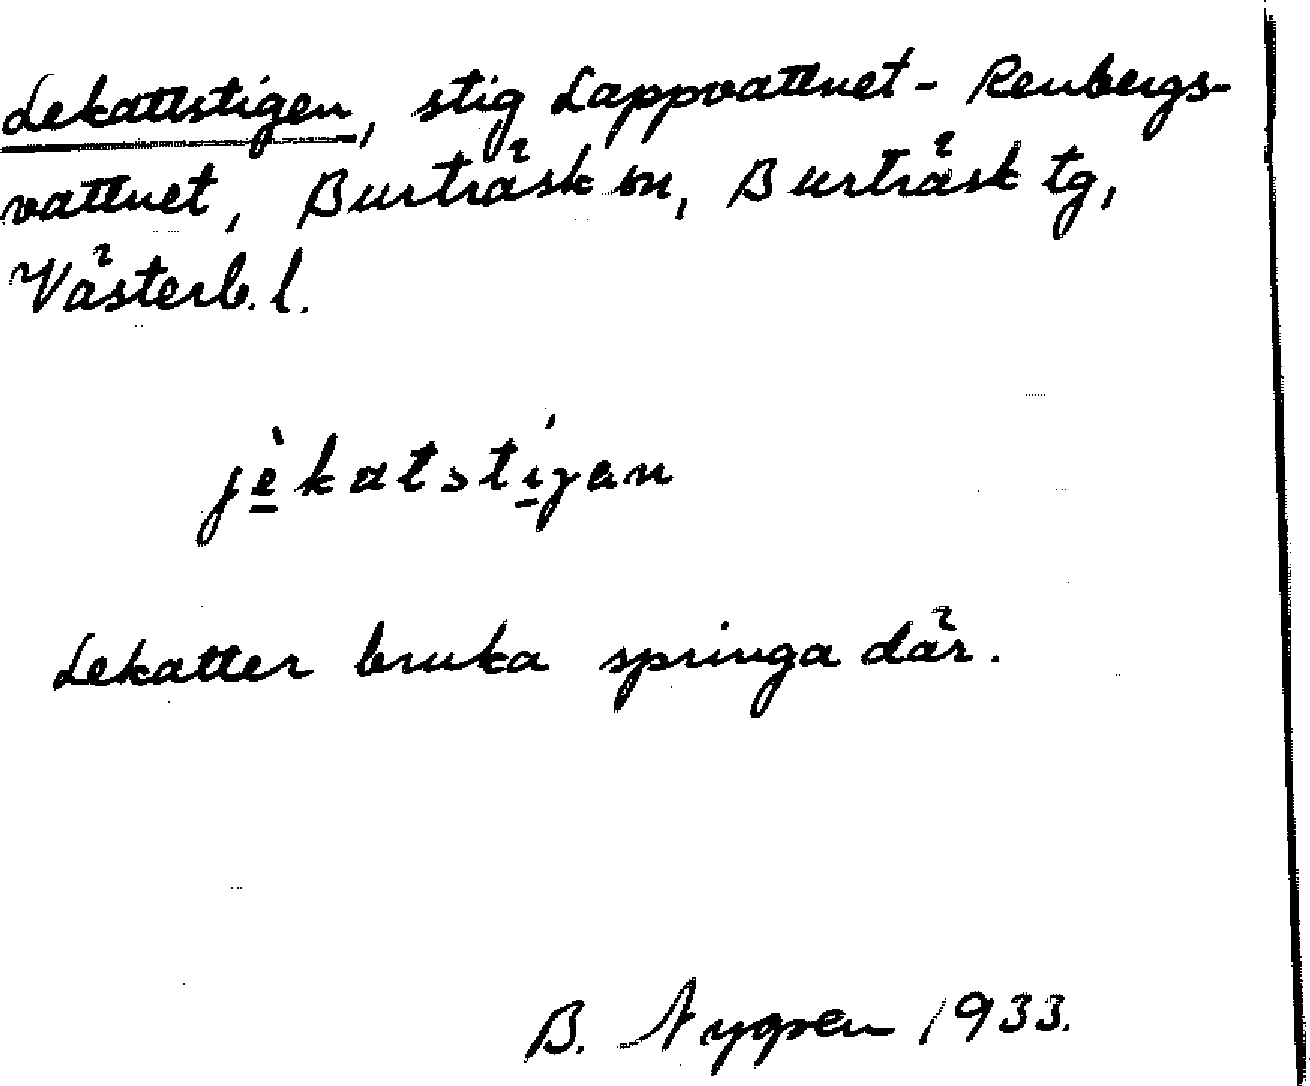 Lekattstigen, stig Lappvattnet - Renbergs-
vattnet, Burträsk sn, Burträsk tg,
Västerb. l.
jèkatstígan
Lekatter bruka springa där.
B. Nygren 1933.